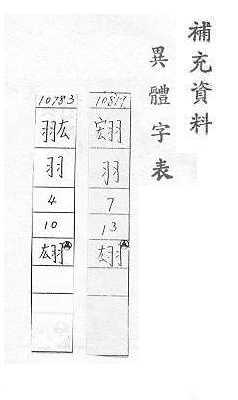 補充資料
異體字表
10817
羽
7
13
翃
10783
羽
4
10
翃